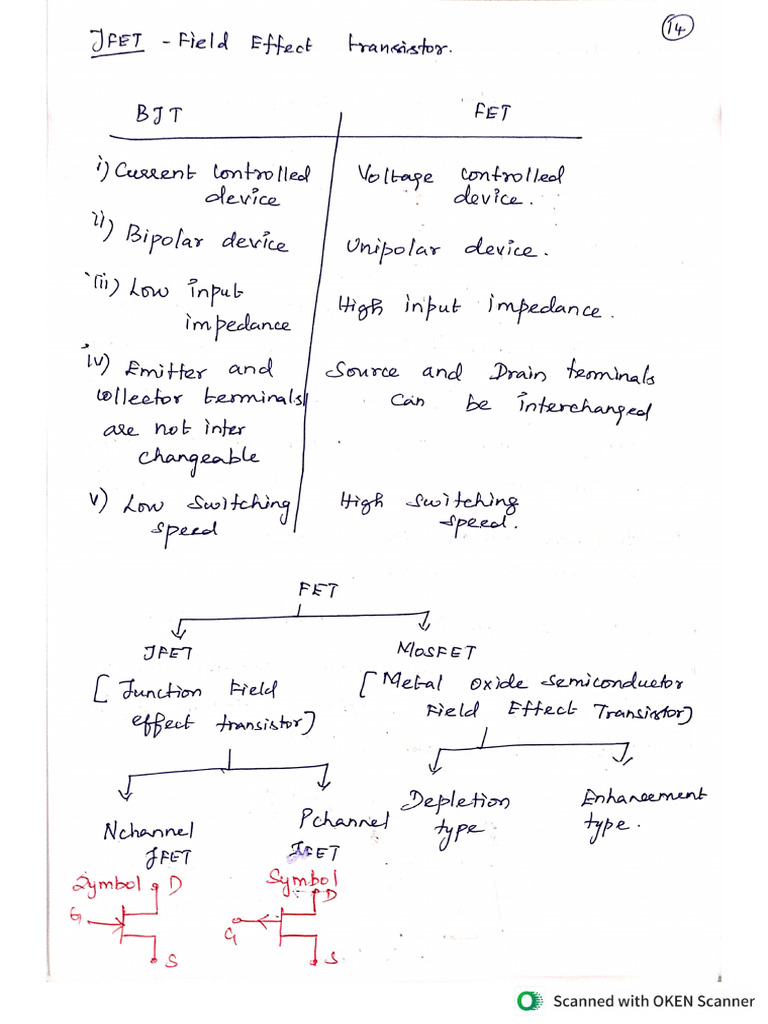 14
JFET - Field Effect transistor.
BJT FET
i) Current Controlled Voltage controlled
device device.
ii) Bipolar device Unipolar device.
iii) Low input High input impedance.
impedance
iv) Emitter and Source and Drain terminals
collector terminals can be interchanged
are not inter
changeable
v) Low Switching High switching
speed speed.
FET
JFET MOSFET
[Junction Field [Metal Oxide Semiconductor
effect transistor] Field Effect Transistor]
Nchannel Pchannel Depletion Enhancement
JFET JFET type type.
Symbol D Symbol D
G G
S S
Scanned with OKEN Scanner